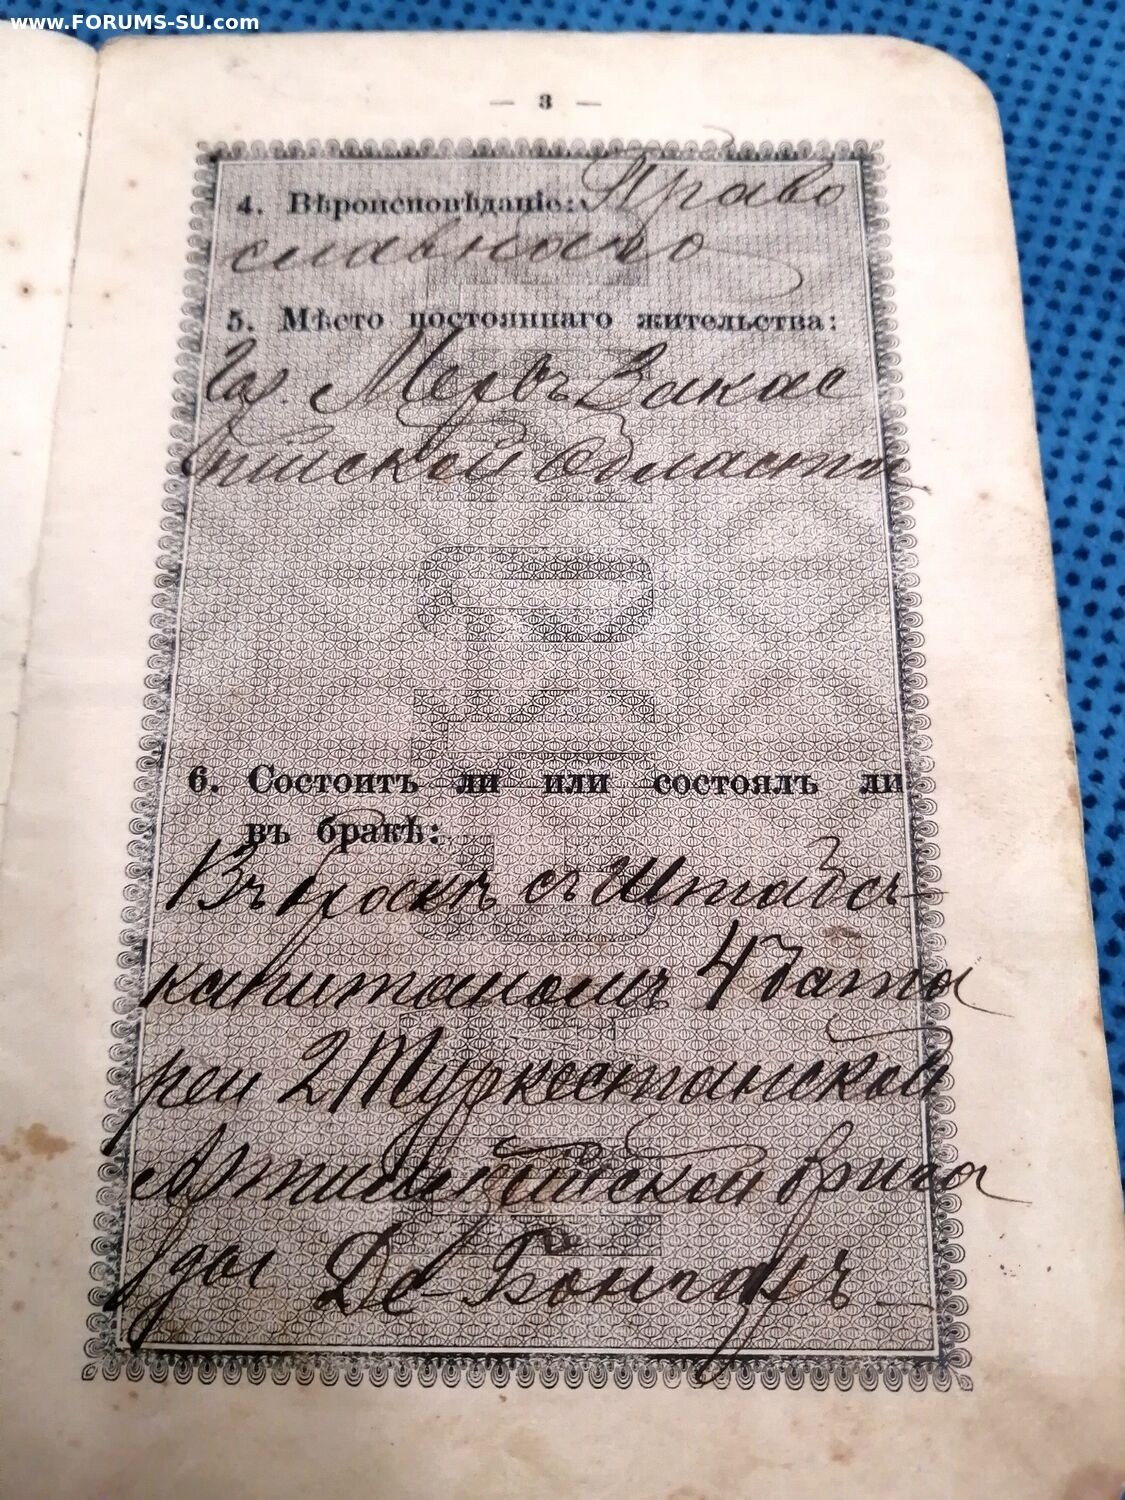 www.FORUMS-SU.com
— 3 —
4. Вѣроисповѣданіе: Право
славнаго
5. Мѣсто постояннаго жительства:
Гор. Мервъ Закас
пійской области
6. Состоитъ ли или состоялъ ли
въ бракѣ:
Въ бракѣ съ Штабсъ-
капитаномъ 4 бата
реи 2 Туркестанской
Артиллерійской брига
ды Де-Бонгаръ —